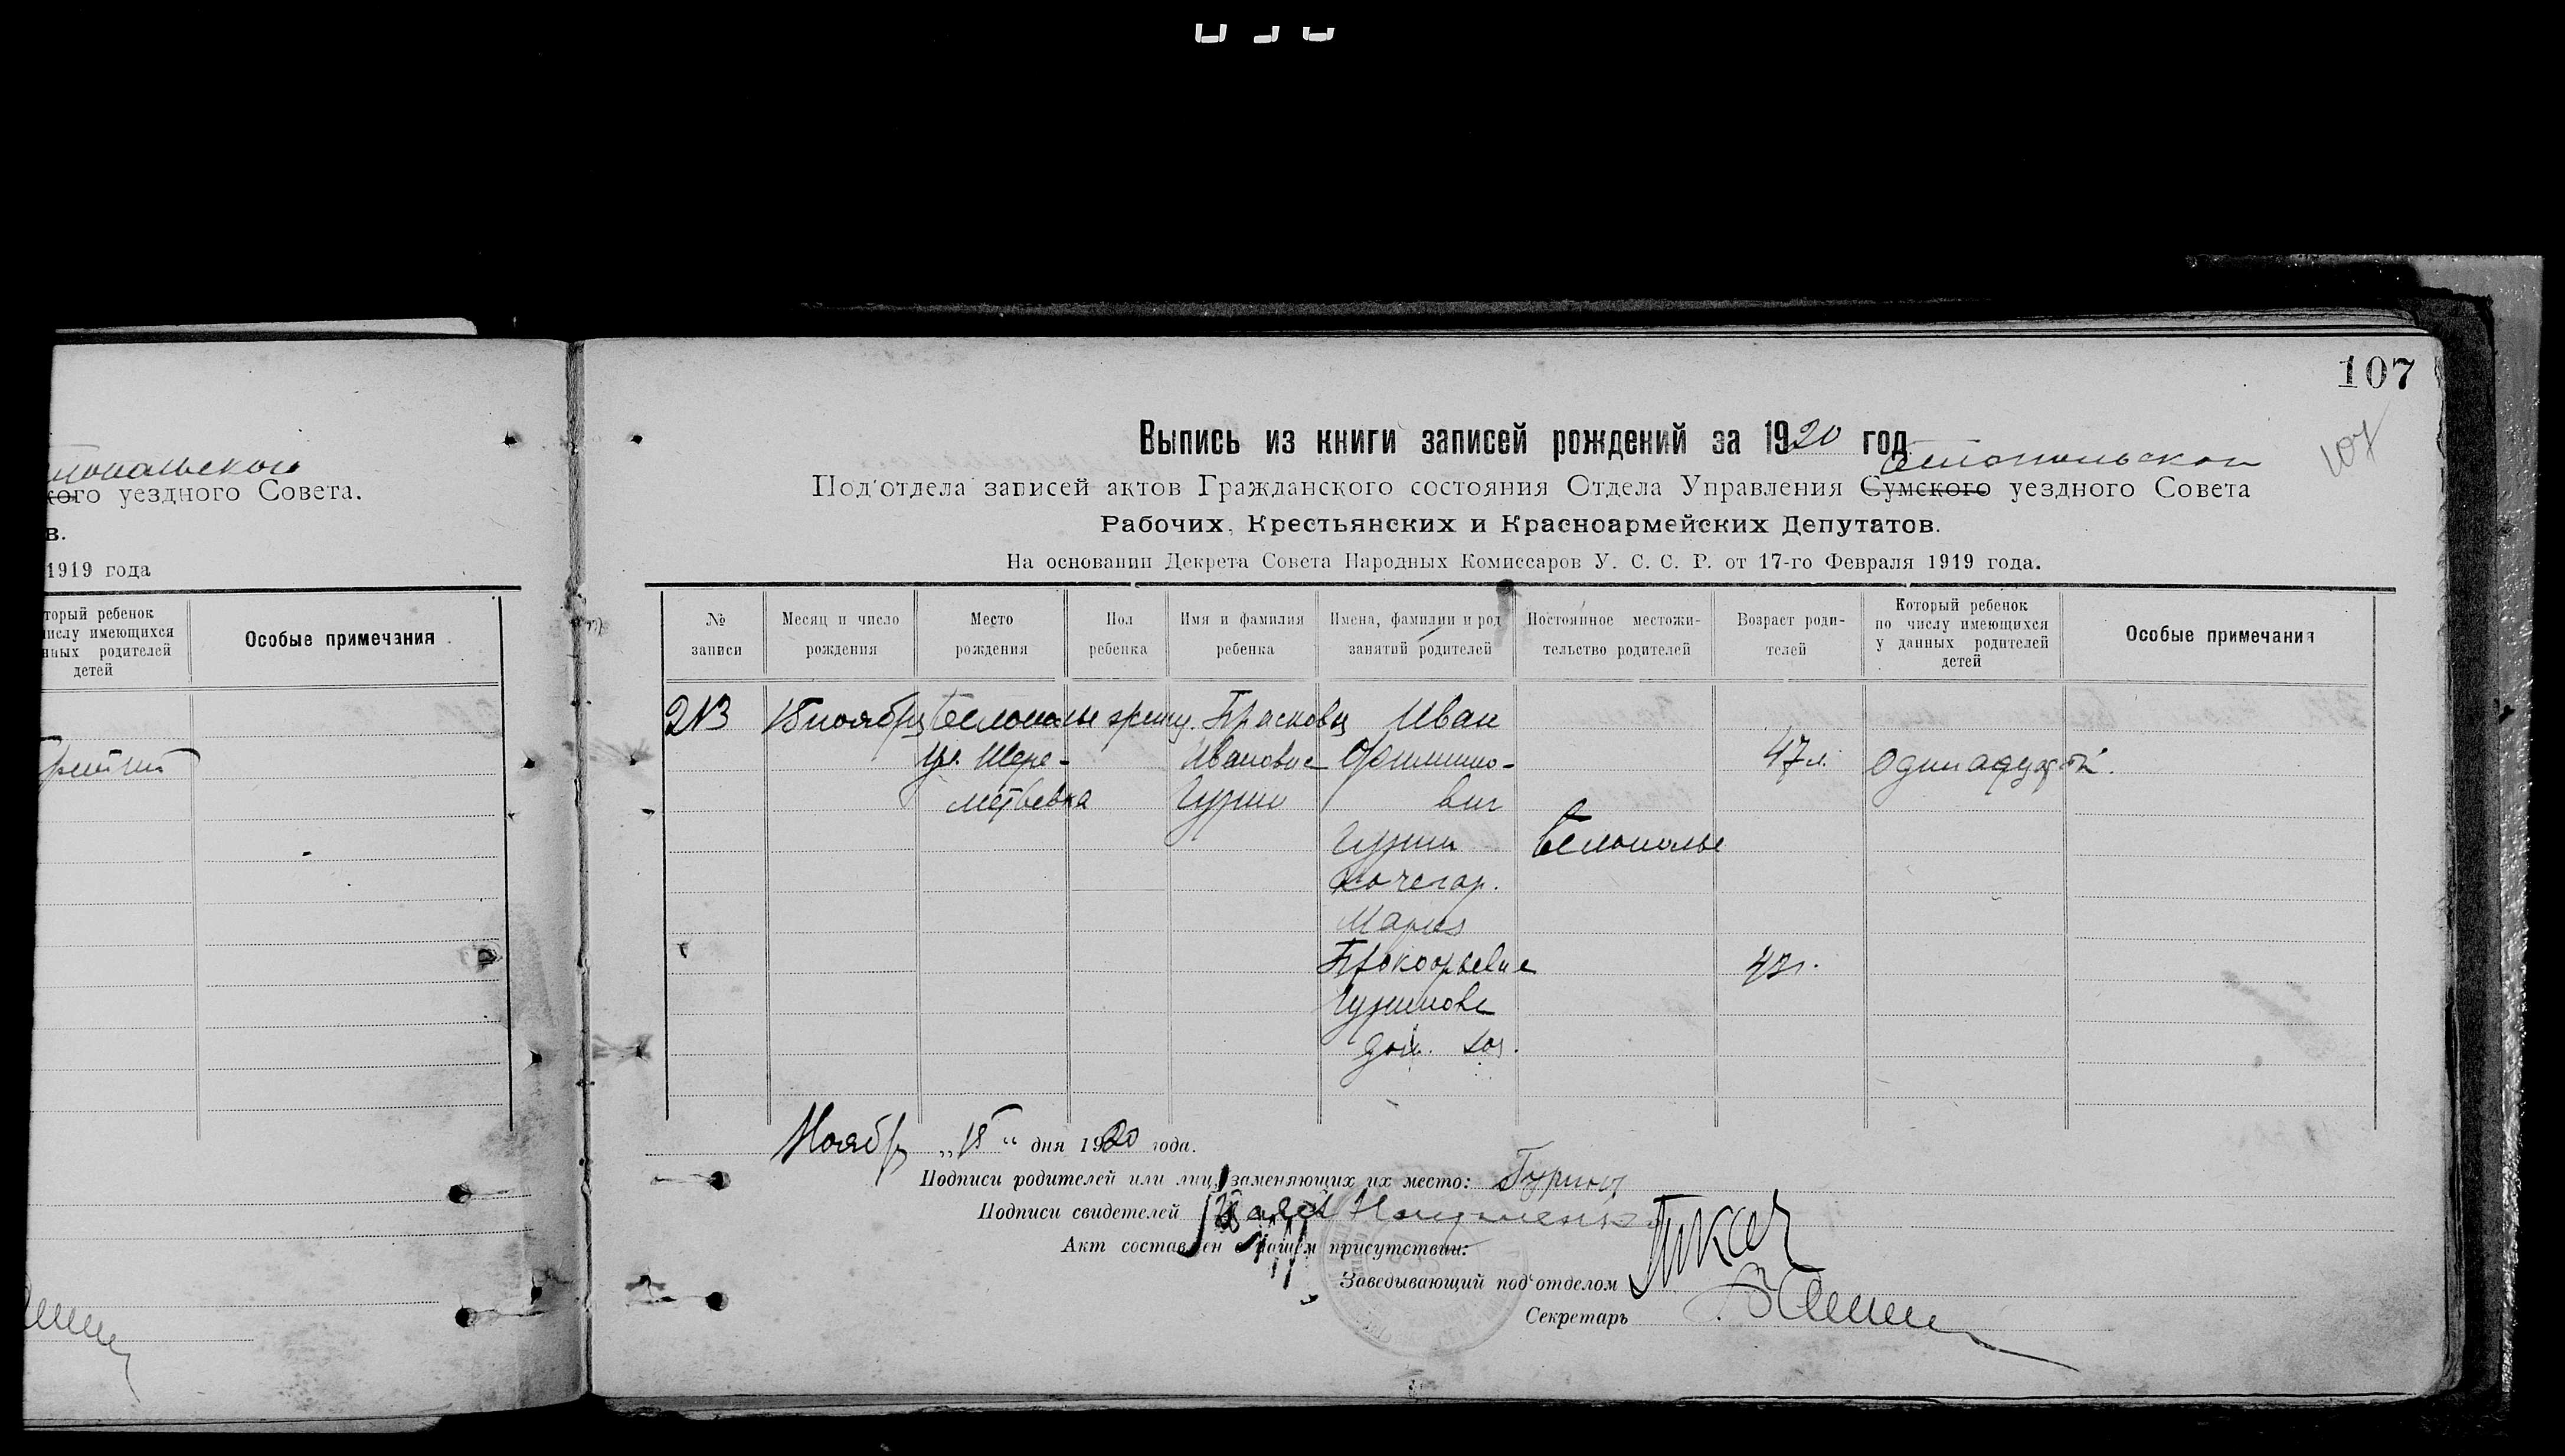 нопольской
кого уездного Совета.
в.
1919 года
торый ребенок
числу имеющихся
нных родителей
детей
Особые примечания
107
107
Выпись из книги записей рождений за 1920 год
Белопольской
Под'отдела записей актов Гражданского состояния Отдела Управления Сумского уездного Совета
Рабочих, Крестьянских и Красноармейских Депутатов.
На основании Декрета Совета Народных Комиссаров У. С. С. Р. от 17-го Февраля 1919 года.
№ записи
Месяц и число рождения
Место рождения
Пол ребенка
Имя и фамилия ребенка
Имена, фамилии и род занятий родителей
Постоянное местожительство родителей
Возраст родителей
Который ребенок по числу имеющихся у данных родителей детей
Особые примечания
213 15 ноября Белополье женщ. Прасковья Иван
ул. Шере- Ивановна Филиппо- 47 л. одинадцатый.
метьевка вич
Белополье
Кочегар.
Мария
Прокофьевна
дом. хоз.
Ноября „18“ дня 1920 года.
Подписи родителей или лиц, заменяющих их место:
Подписи свидетелей
Акт составлен в нашем присутствии:
Заведывающий под'отделом
Секретарь